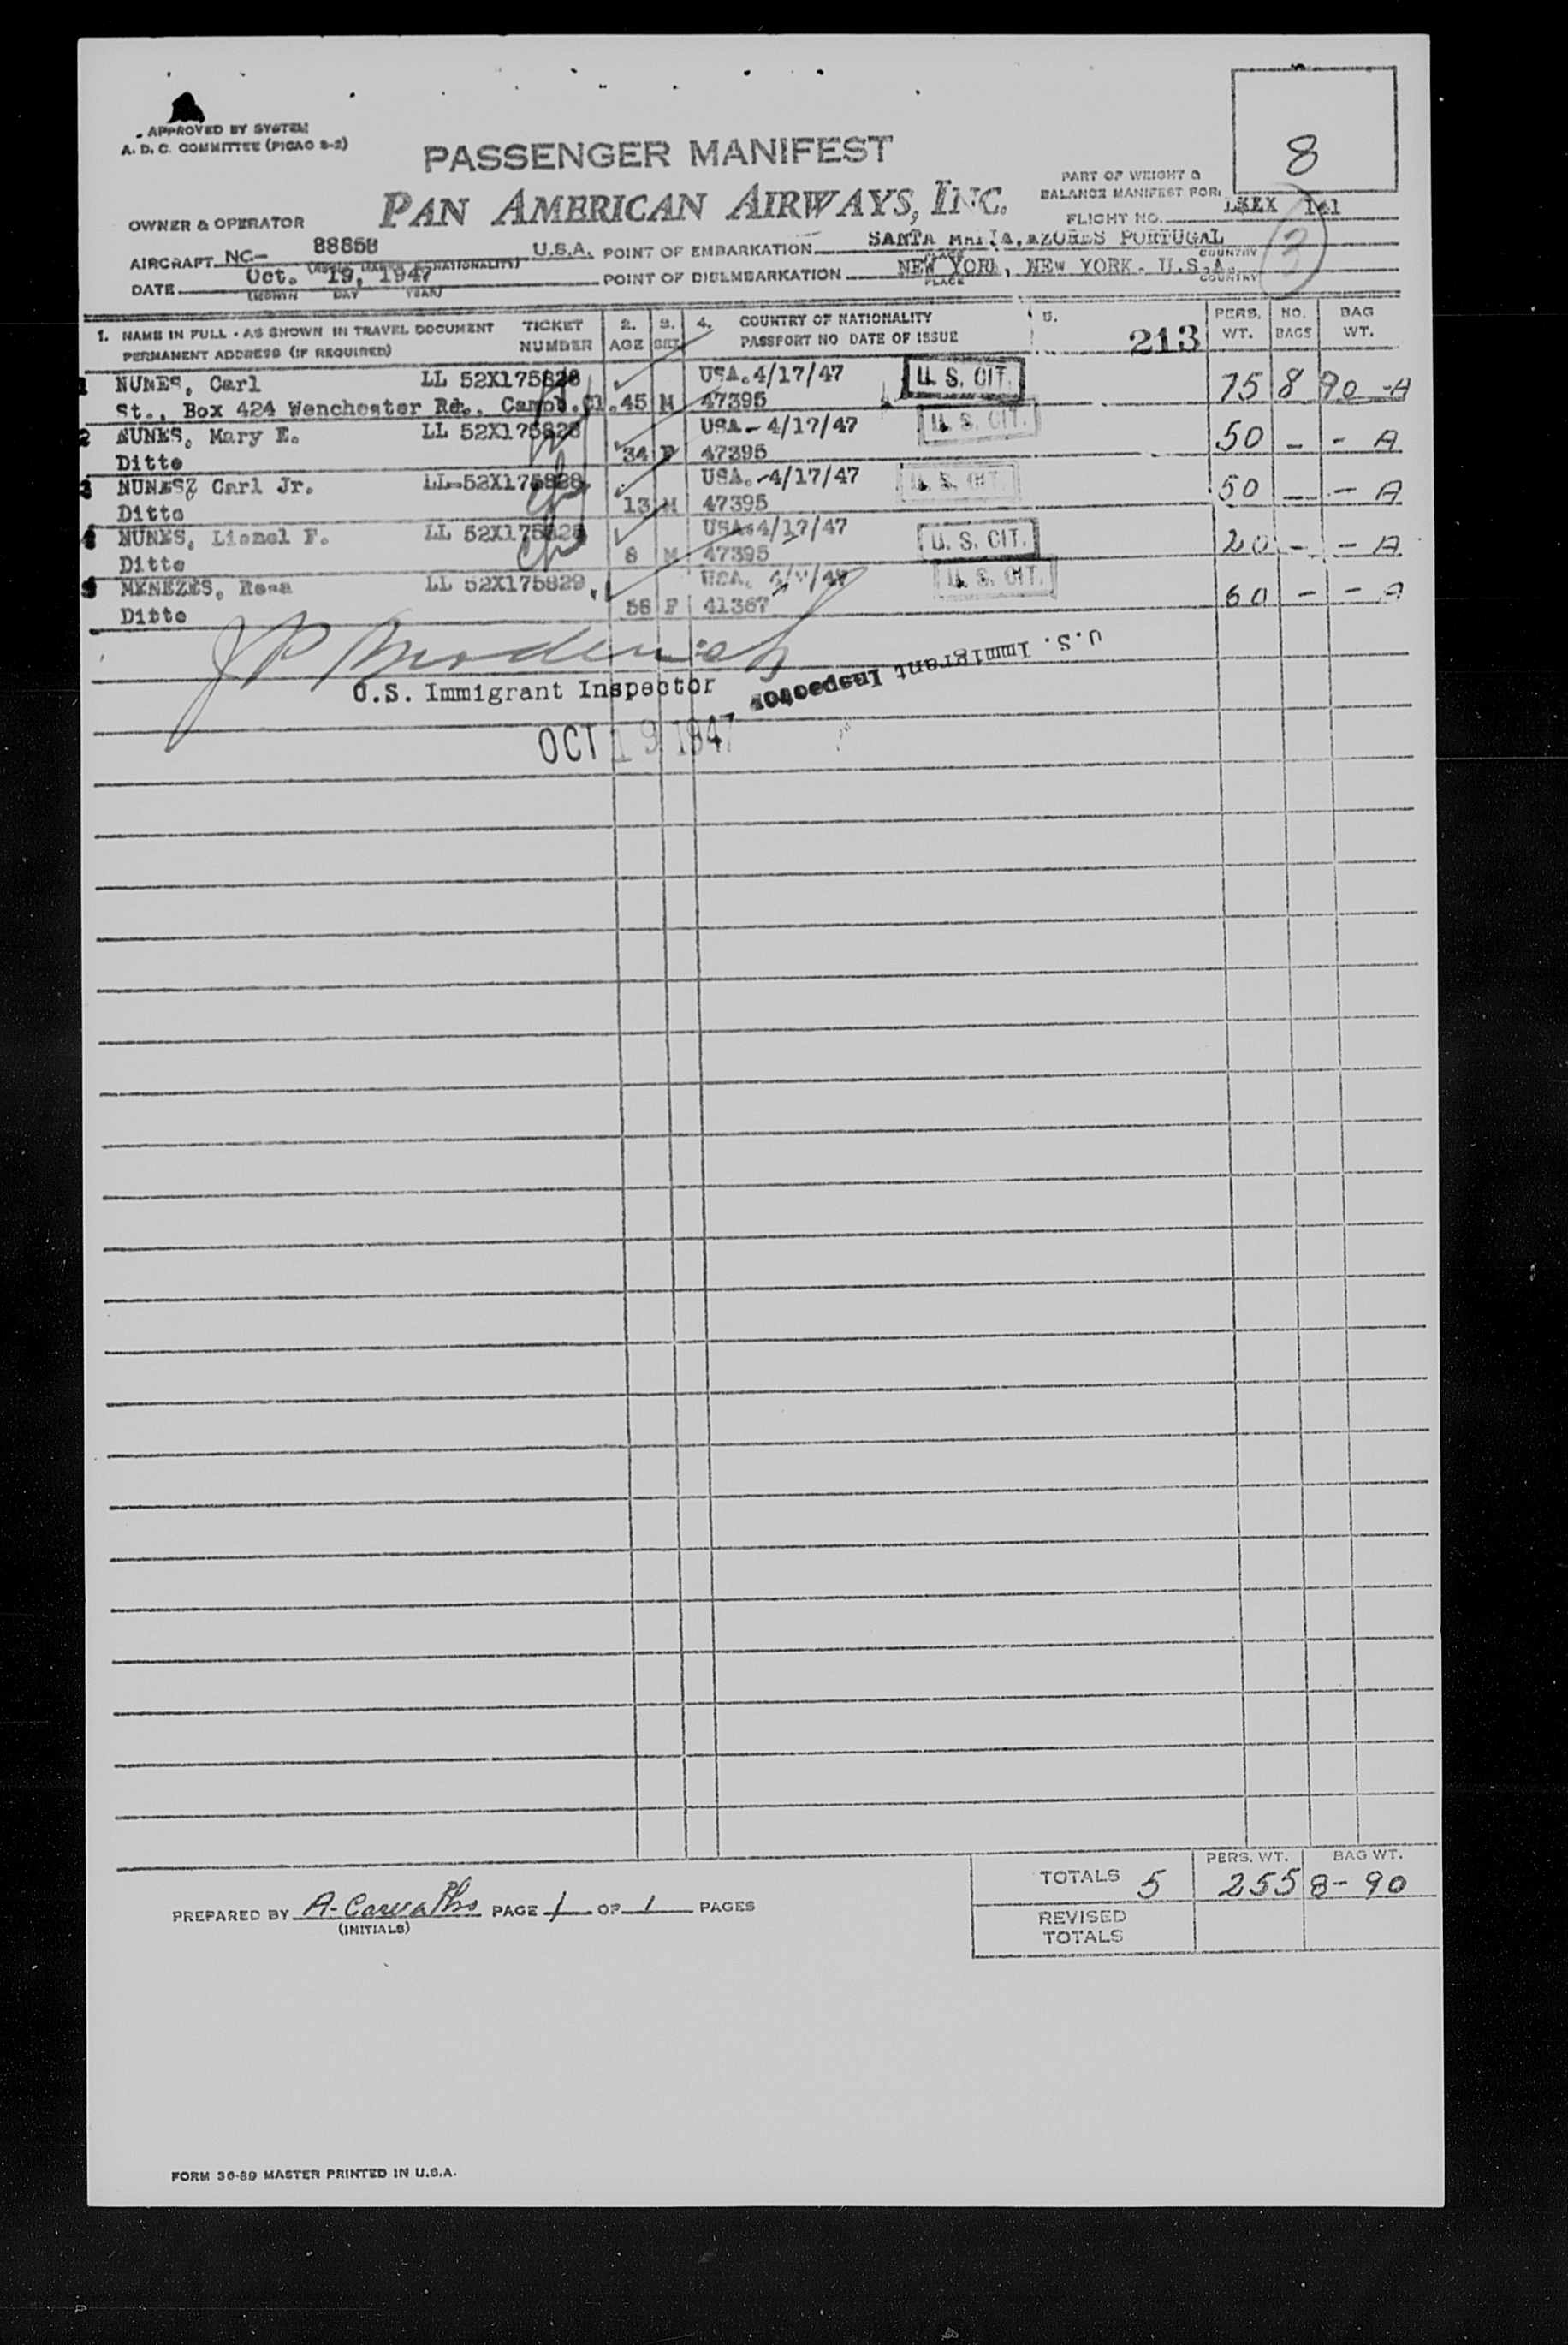 APPROVED BY SYSTEM
A. D. C. COMMITTEE (PICAO S-2)
PASSENGER MANIFEST
PAN AMERICAN AIRWAYS, INC.
8
PART OF WEIGHT &
BALANCE MANIFEST FOR:
FLIGHT NO.
3
OWNER & OPERATOR
AIRCRAFT NC- 88858 U.S.A. POINT OF EMBARKATION SANTA MARIA, AZORES PORTUGAL
COUNTRY
DATE Oct. 19, 1947 POINT OF DISEMBARKATION NEW YORK, NEW YORK. U.S.A.
(MONTH DAY YEAR) PLACE COUNTRY
1. NAME IN FULL - AS SHOWN IN TRAVEL DOCUMENT TICKET 2. 3. 4. COUNTRY OF NATIONALITY 5. PERS. NO. BAG
PERMANENT ADDRESS (IF REQUIRED) NUMBER AGE SEX PASSPORT NO DATE OF ISSUE 213 WT. BAGS WT.
1 NUNES, Carl LL 52X175828 USA. 4/17/47 U. S. CIT. 75 8 90 -A
St., Box 424 Wenchester Rd., 45 M 47395
2 NUNES, Mary E. LL 52X175828 USA - 4/17/47 U. S. CIT. 50 - - A
Ditto 34 F 47395
3 NUNES, Carl Jr. LL-52X175828 USA.-4/17/47 U. S. CIT. 50 - - A
Ditto 13 M 47395
4 NUNES, Lionel F. LL 52X175828 USA 4/17/47 U. S. CIT. 20 - - A
Ditto 8 M 47395
5 MENEZES, Rosa LL 52X175829 USA. U. S. CIT. 60 - - A
Ditto 56 F 41367
U.S. Immigrant Inspector
U.S. Immigrant Inspector
OCT 19 1947
TOTALS 5 PERS. WT. 255 BAG WT. 8- 90
REVISED
TOTALS
PREPARED BY A. Carvalho PAGE 1 OF 1 PAGES
(INITIALS)
FORM 36-89 MASTER PRINTED IN U.S.A.